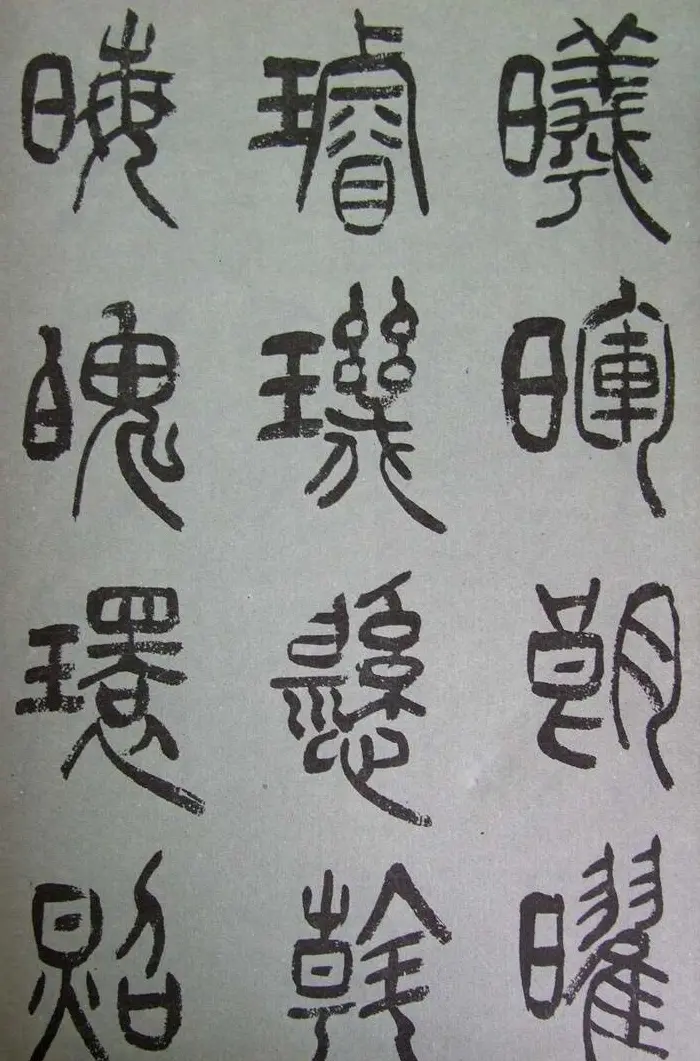 曦暉朗曜
璿璣懸斡
晦魄環照